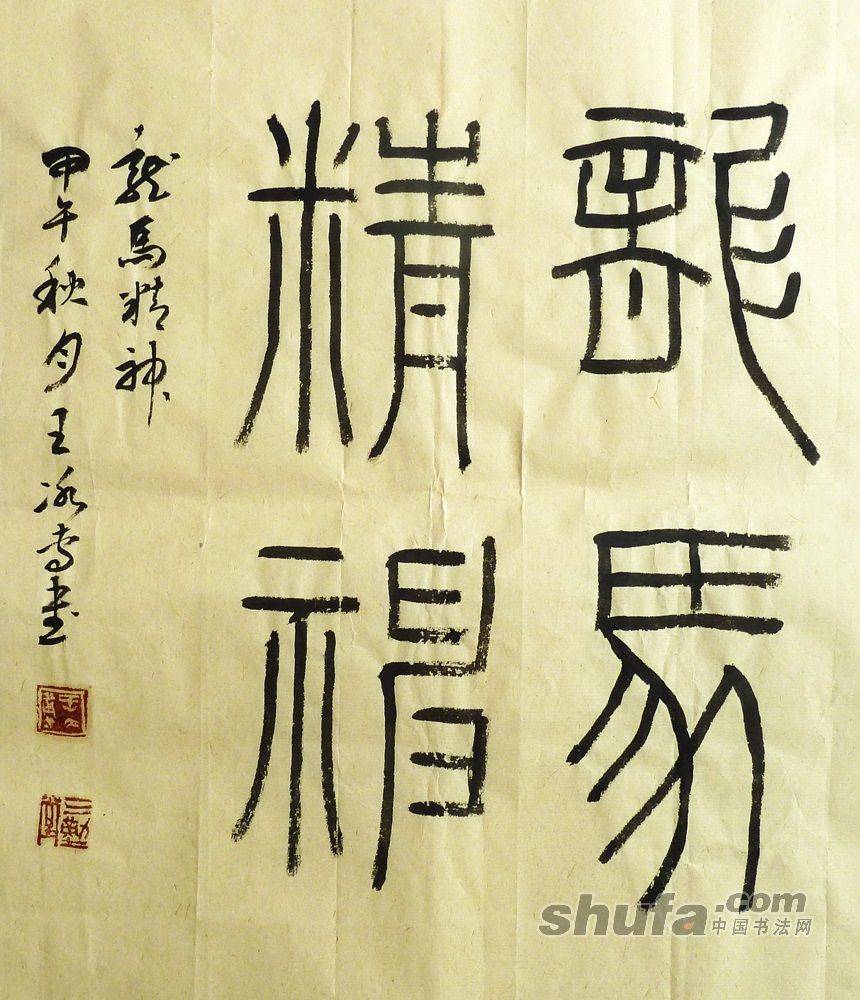 龍馬
精神
龍馬精神
甲午秋月王冰書
三勤堂
shufa.com
中国书法网